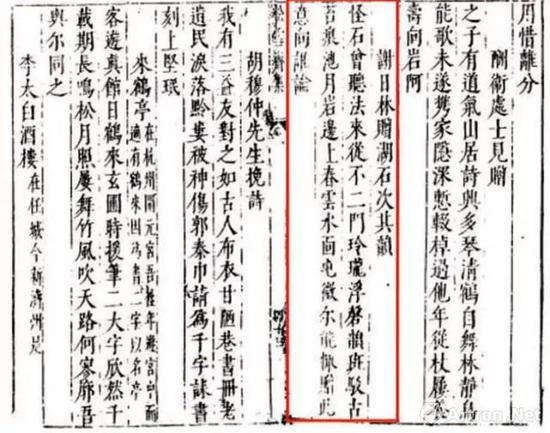 惜離分
酬衛處士見贈
之子有道氣山居詩興多琴清鶴自舞林靜鳥
能歌未遂攜家隱深慙輟棹過他年從杖屨
向岩阿
謝日林贈湖石次其韻
怪石曾聽法來從不二門玲瓏浮磬韻斑駁古
苔池月岩邊上春雲水面屯微尔能贈此
意向誰論
松雪齋集
胡穆仲先生挽詩
我有三益友對之如古人布衣甘陋巷書冊老
遺民淚落黔婁被神傷郭泰巾請爲千字誄書
刻上堅珉
來鶴亭 在杭州開元宮吾年遊宮中而
適有鶴來因爲書二字以名亭
客遊真館日鶴來玄圃時援筆二大字欣然千
載期長鳴松月照屢舞竹風吹天路何寥廓吾
與尔同之
李太白酒樓 在任城今新濟州是
Artron.Net